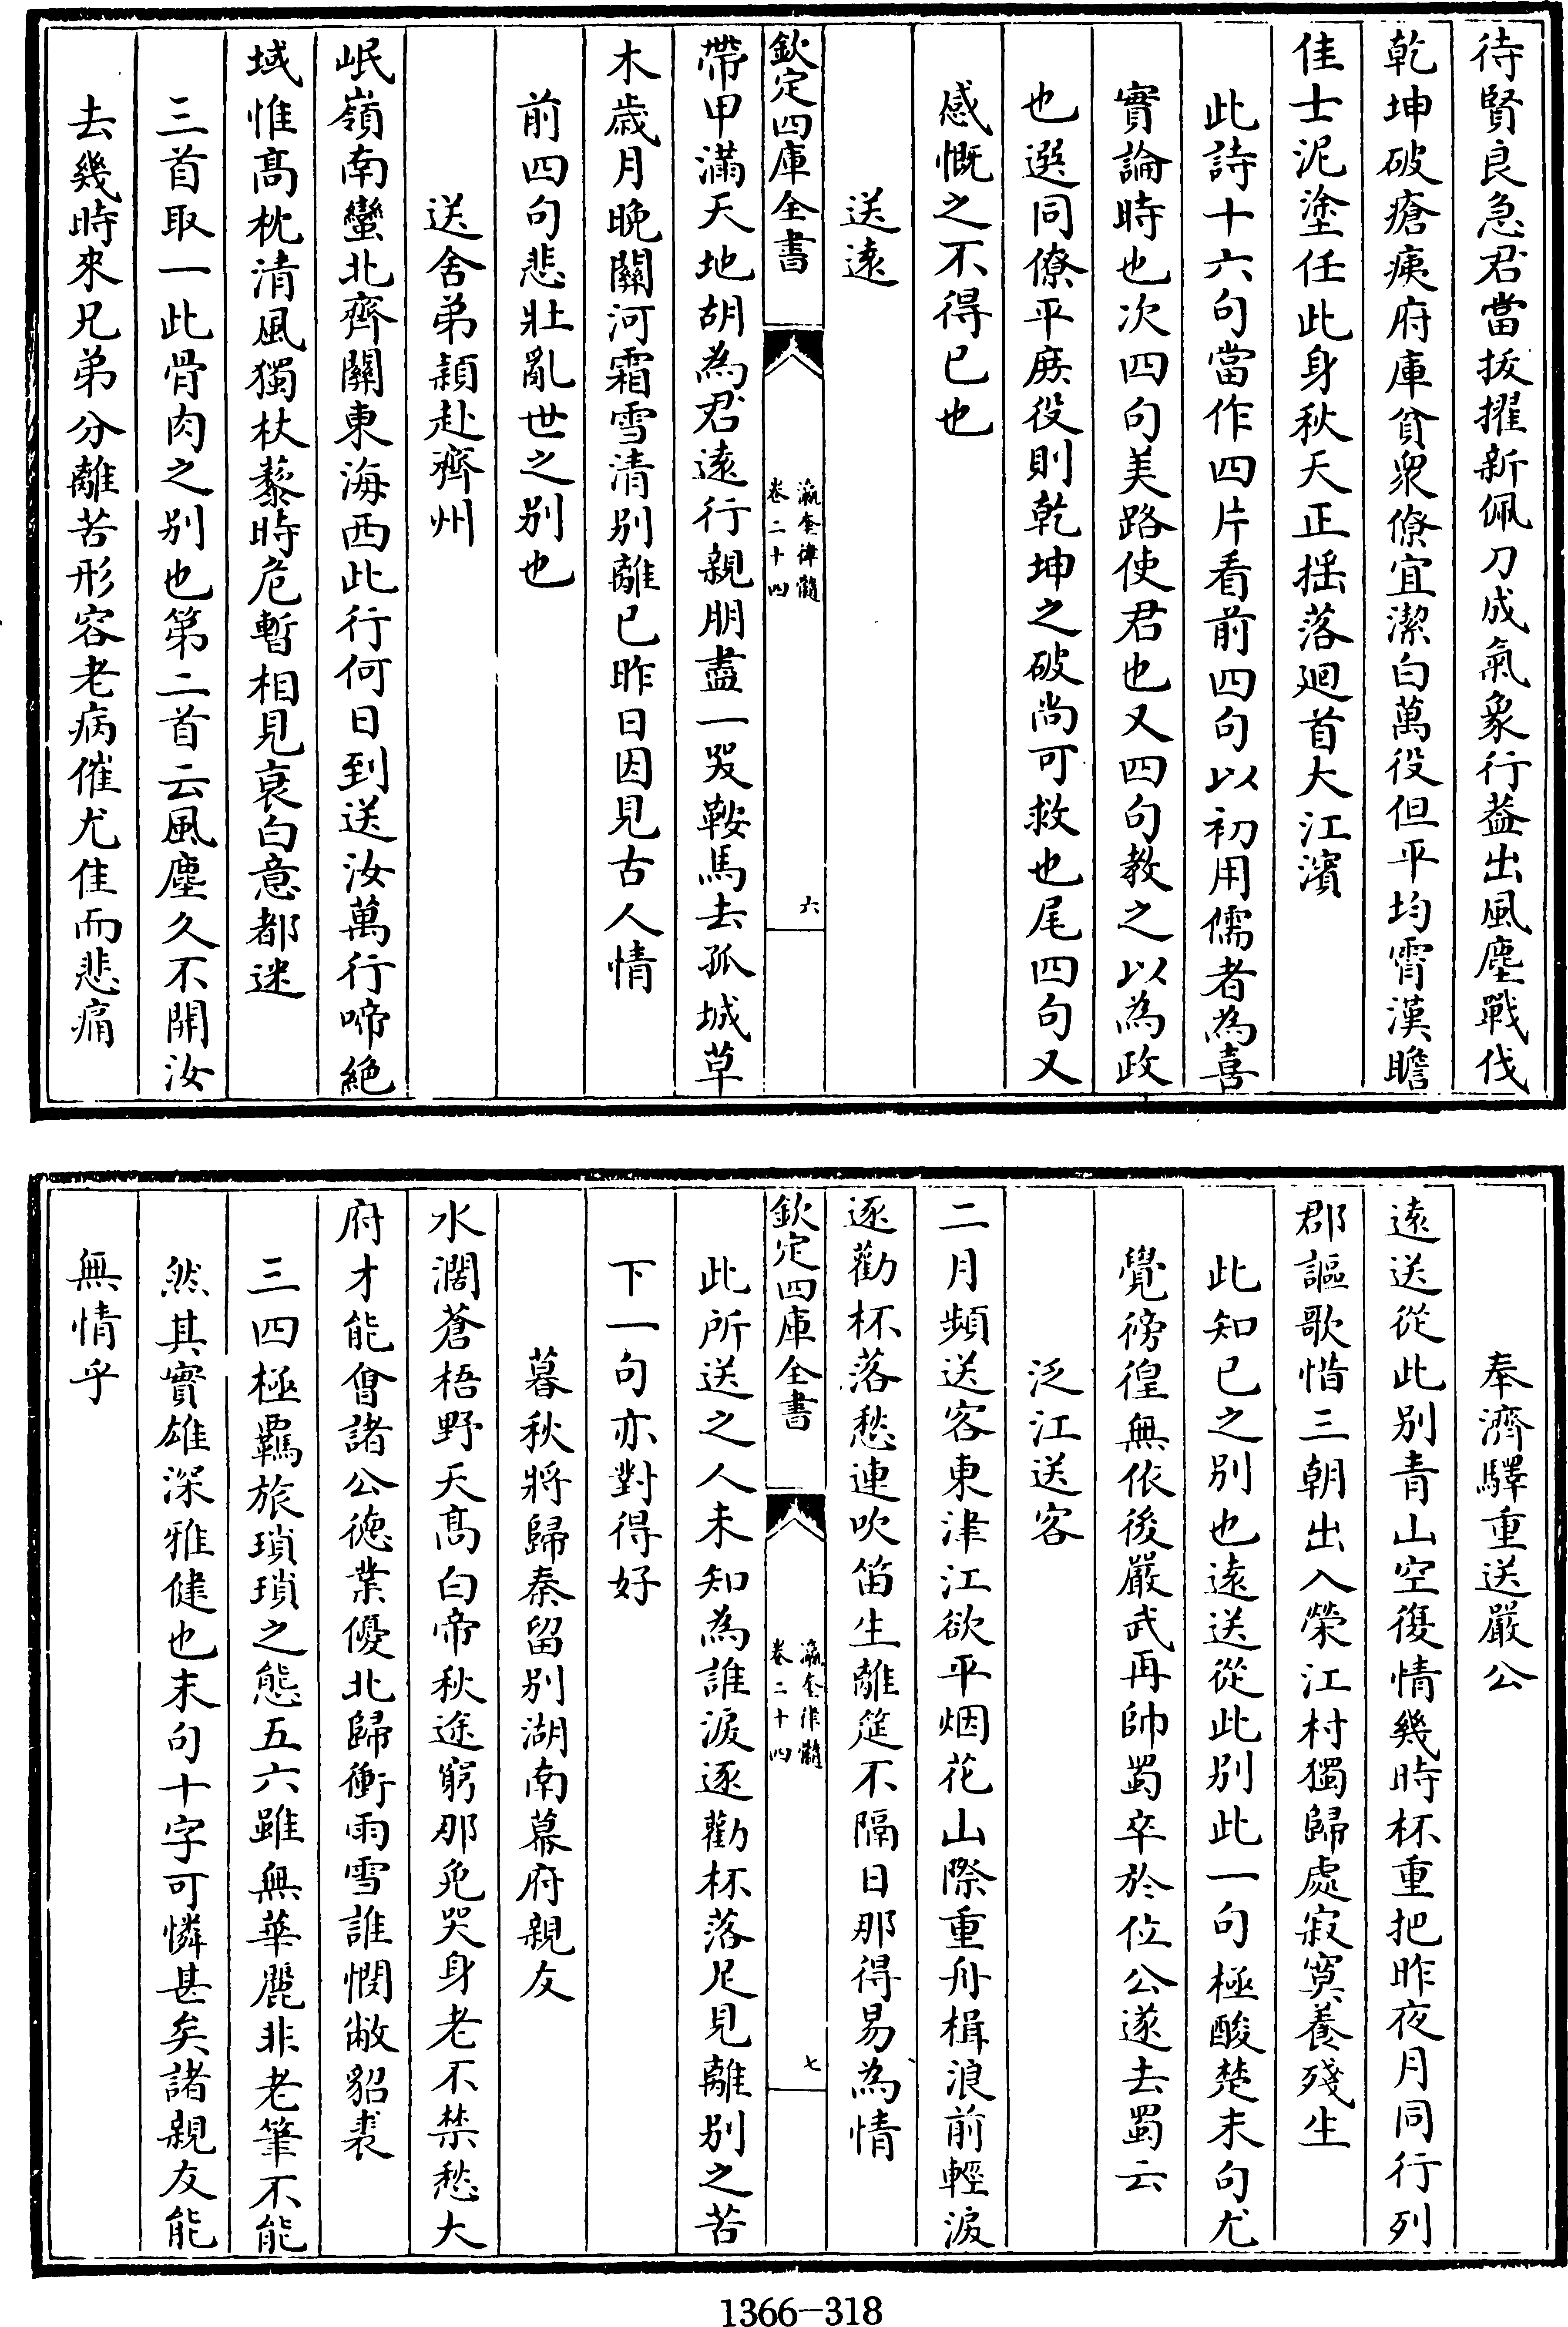 待賢良急君當拔擢新佩刀成氣象行葢出風塵戰伐
乾坤破瘡痍府庫貧衆僚宜潔白萬役但平均霄漢瞻
佳士泥塗任此身秋天正揺落廻首大江濱
此詩十六句當作四片看前四句以初用儒者為喜
實論時也次四句美路使君也又四句教之以為政
也選同僚平庶役則乾坤之破尚可救也尾四句又
感慨之不得已也
送逺
欽定四庫全書
瀛奎律髓
卷二十四
六
帶甲滿天地胡為君逺行親朋盡一哭鞍馬去孤城草
木歳月晚關河霜雪清别離已昨日因見古人情
前四句悲壯亂世之别也
送舍弟頴赴齊州
岷嶺南蠻北齊關東海西此行何日到送汝萬行啼絶
域惟髙枕清風獨杖藜時危暫相見衰白意都迷
三首取一此骨肉之别也第二首云風塵久不開汝
去幾時來兄弟分離苦形容老病催尤佳而悲痛
奉濟驛重送嚴公
逺送從此别青山空復情幾時杯重把昨夜月同行列
郡謳歌惜三朝出入榮江村獨歸處寂寞養殘生
此知已之别也逺送從此别此一句極酸楚末句尤
覺徬徨無依後嚴武再帥蜀卒於位公遂去蜀云
泛江送客
二月頻送客東津江欲平烟花山際重舟楫浪前輕淚
逐勸杯落愁連吹笛生離筵不隔日那得易為情
欽定四庫全書
瀛奎律髓
卷二十四
七
此所送之人未知為誰淚逐勸杯落足見離别之苦
下一句亦對得好
暮秋將歸秦留别湖南幕府親友
水濶蒼梧野天髙白帝秋途窮那免哭身老不禁愁大
府才能㑹諸公徳業優北歸衝雨雪誰憫敝貂裘
三四極羈旅瑣瑣之態五六雖無華麗非老筆不能
然其實雄深雅健也末句十字可憐甚矣諸親友能
無情乎
1366-318